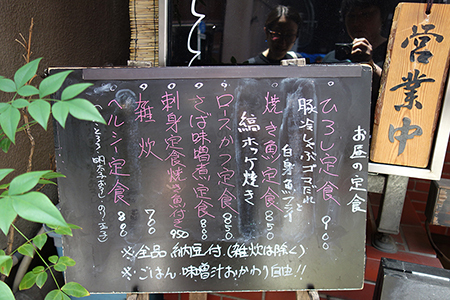 お昼の定食
ひろし定食 900
豚冷しゃぶゴマだれ
白身魚フライ
焼き魚定食 850
縞ホッケ焼き
ロースかつ定食 850
さば味噌煮定食 800
刺身定食焼き魚付 950
雑炊 700
ヘルシー定食 800
※全品 納豆付(雑炊は除く)
※ごはん・味噌汁おかわり自由!!
営業中